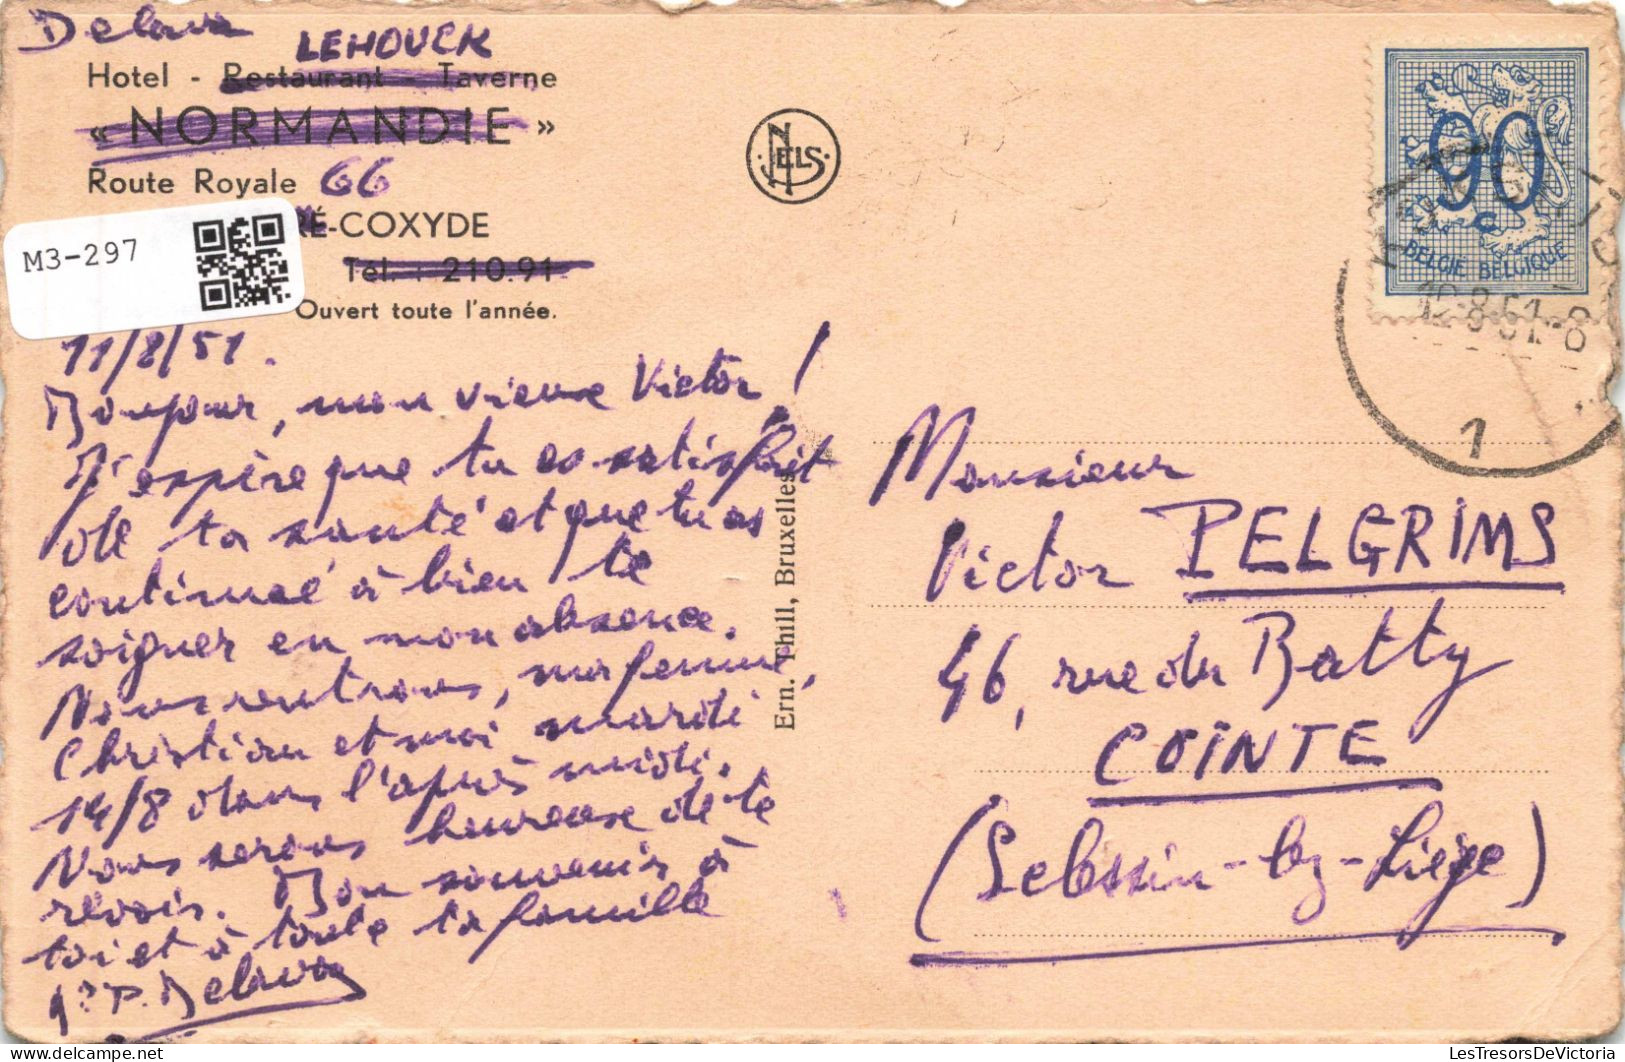 LEHOUCK
Hotel - Restaurant - Taverne
« NORMANDIE »
Route Royale 66
RÉ-COXYDE
Tél. : 210.91
Ouvert toute l'année.
M3-297
NELS
90
BELGIE BELGIQUE
12-8.51.-8
1
11/8/51.
Bonjour, mon vieux Victor !
J'espère que tu es satisfait
de ta santé et que tu as
continué à bien te
soigner en mon absence.
Nous rentrons, ma femme,
Christian et moi mardi
14/8 dans l'après midi.
Nous serons heureux de te
revoir. Bon souvenir à
toi et à toute ta famille
Ern. Thill, Bruxelles
Monsieur
Victor PELGRIMS
46, rue du Batty
COINTE
(Sclessin-lez-Liège)
LesTresorsDeVictoria